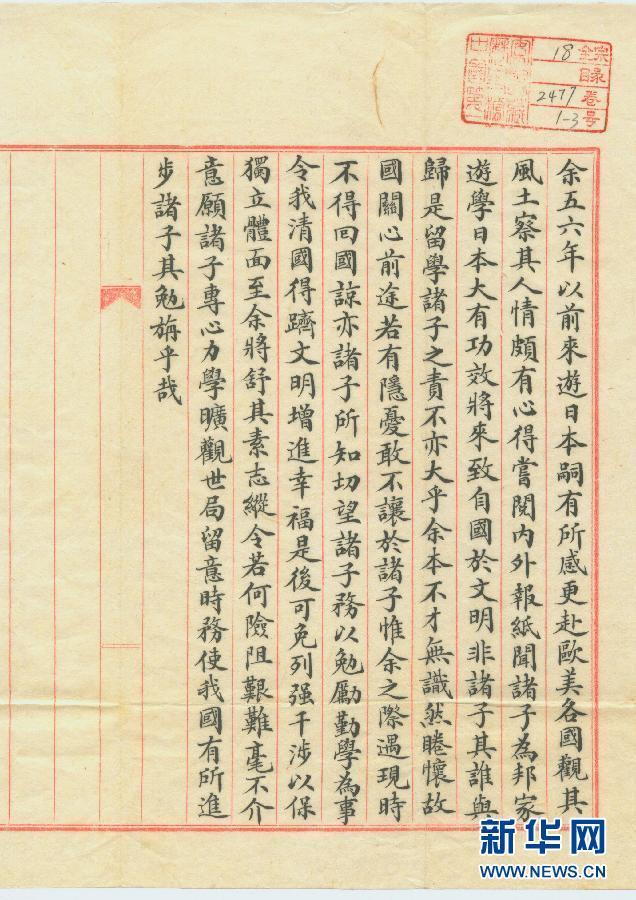 宗
全
目录
卷号
18
2477
1-3
余五六年以前來遊日本嗣有所感更赴歐美各國觀其
風土察其人情頗有心得嘗閱內外報紙聞諸子為邦家
遊學日本大有功效將來致自國於文明非諸子其誰與
歸是留學諸子之責不亦大乎余本不才無識然睠懷故
國關心前途若有隱憂敢不讓於諸子惟余之際遇現時
不得回國諒亦諸子所知切望諸子務以勉勵勤學為事
令我清國得躋文明增進幸福是後可免列强干涉以保
獨立體面至余將舒其素志縱令若何險阻艱難毫不介
意願諸子專心力學曠觀世局留意時務使我國有所進
步諸子其勉旃乎哉
新华网
WWW.NEWS.CN